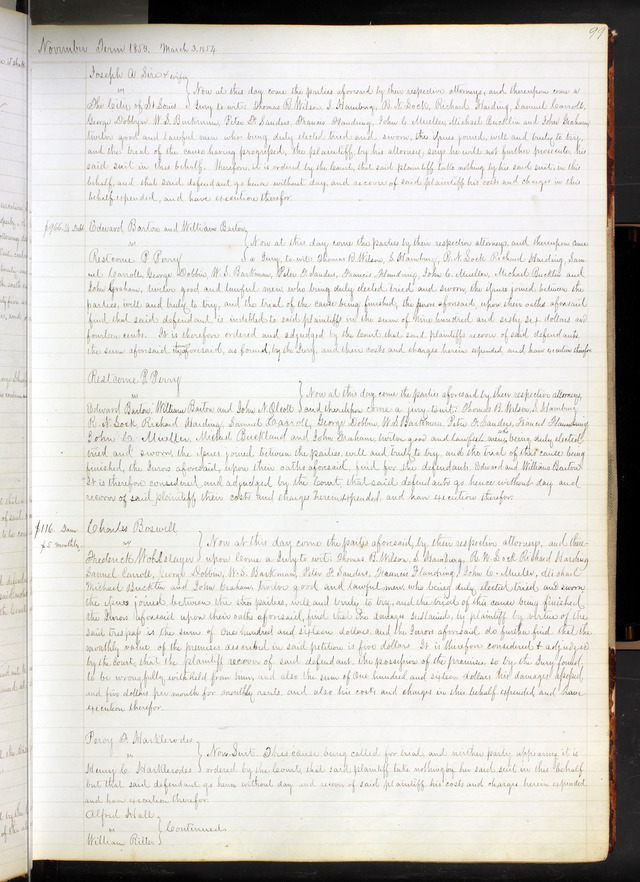 99
November Term 1853. March 3. 1854
Joseph A Sire & wife
vs } Now at this day come the parties aforesaid by their respective attorneys, and thereupon come a
The City of St Louis } Jury to wit: Thomas B. Wilson, S Hamburg, R. N. Lock, Richard Harding, Samuel Carroll,
George Dobbin, W. S. Barkman, Peter F. Sanders, Francis Flamdring, John C. Mueller, Michael Bucklin and John Graham
twelve good and lawful men who being duly elected tried and sworn, the issues joined, well and truly to try,
and the trial of the cause having progressed, the plaintiff, by his attorney, says he will not further prosecute his
said suit in this behalf. Therefore, it is ordered by the Court, that said plaintiff take nothing by his said suit, in this
behalf, and that said defendant go hence without day, and recover of said plaintiff his costs and charges in this
behalf expended, and have execution therefor.
$966.14 Debt Edward Barton and William Barton
vs } Now at this day come the parties by their respective attorneys, and thereupon came
Restcome P. Perry } a Jury, to wit: Thomas B. Wilson, S Hamburg, R. N. Lock Richard Harding, Sam
uel Carroll, George Dobbin W. S. Barkman, Peter F. Sanders, Francis, Flamdring, John C. Mueller, Michael Bucklin and
John Graham, twelve good and lawful men who being duly elected tried and sworn the issues joined between the
parties, well and truly to try, and the trial of the cause being finished, the jurors aforesaid, upon their oaths aforesaid
find that said defendant is indebted to said plaintiffs in the sum of nine hundred and sixty six dollars and
fourteen cents. It is therefore ordered and adjudged by the Court, that said plaintiffs recover of said defendants
the sum aforesaid aforesaid, as found by the Jury, and their costs and charges herein expended, and have execution therefor
Restcome P. Perry
vs } Now at this day come the parties aforesaid by their respective attorneys,
Edward Barton, William Barton and John N. Olcott } and thereupon come a jury to wit: Thomas B. Wilson, S. Hamburg
R. N. Lock Richard Harding, Samuel Carroll, George Dobbin, W. S. Barkman, Peter F. Sanders, Francis Flamdring
John C. Mueller, Michael Buckland and John Graham, twelve good and lawful men, who being duly elected
tried and sworn the issues joined between the parties, well and truly to try, and the trial of this cause being
finished, the Jurors aforesaid, upon their oaths aforesaid, find for the defendants Edward and William Barton
It is therefore considered and adjudged by the Court, that said defendants go hence without day and
recover of said plaintiff their costs and charges herein expended and have execution therefor.
$116. Dam Charles Boswell
$5 monthly vs } Now at this day come the parties aforesaid, by their respective attorneys, and there-
Frederick Wohlslayer } upon come a Jury to wit: Thomas B. Wilson, S Hamburg, R. N. Lock Richard Harding
Samuel Carroll, George Dobbin, W. S. Barkman, Peter F. Sanders, Francis Flamdring, John C. Mueller, Michael
Michael Bucklin and John Graham twelve good and lawful men, who being duly elected, tried and sworn
the issues joined between the parties, well and truly to try, and the trial of this cause being finished
the Jurors aforesaid upon their oaths aforesaid, find that the damage sustained, by plaintiff by virtue of the
said trespass is the sum of One hundred and sixteen dollars, and the Jurors aforesaid do further find that the
monthly value of the premises described in said petition is five dollars. It is therefore considered & adjudged
by the Court, that the plaintiff recover of said defendant the possession of the premises so by the Jury found,
to be wrongfully withheld from him, and also the sum of One hundred and sixteen dollars his damages assessed,
and five dollars per month for monthly rents, and also his costs and charges in this behalf expended and have
execution therefor.
Percy D. Marklerodes
vs } Now Suit. This cause being called for trial, and neither party appearing it is
Henry C. Harklerodes } ordered by the Court, that said plaintiff take nothing by his said suit in this behalf
but that said defendant go hence without day and recover of said plaintiff his costs and charges herein expended
and have execution therefor.
Alford Hall
vs } Continued
William Ritter